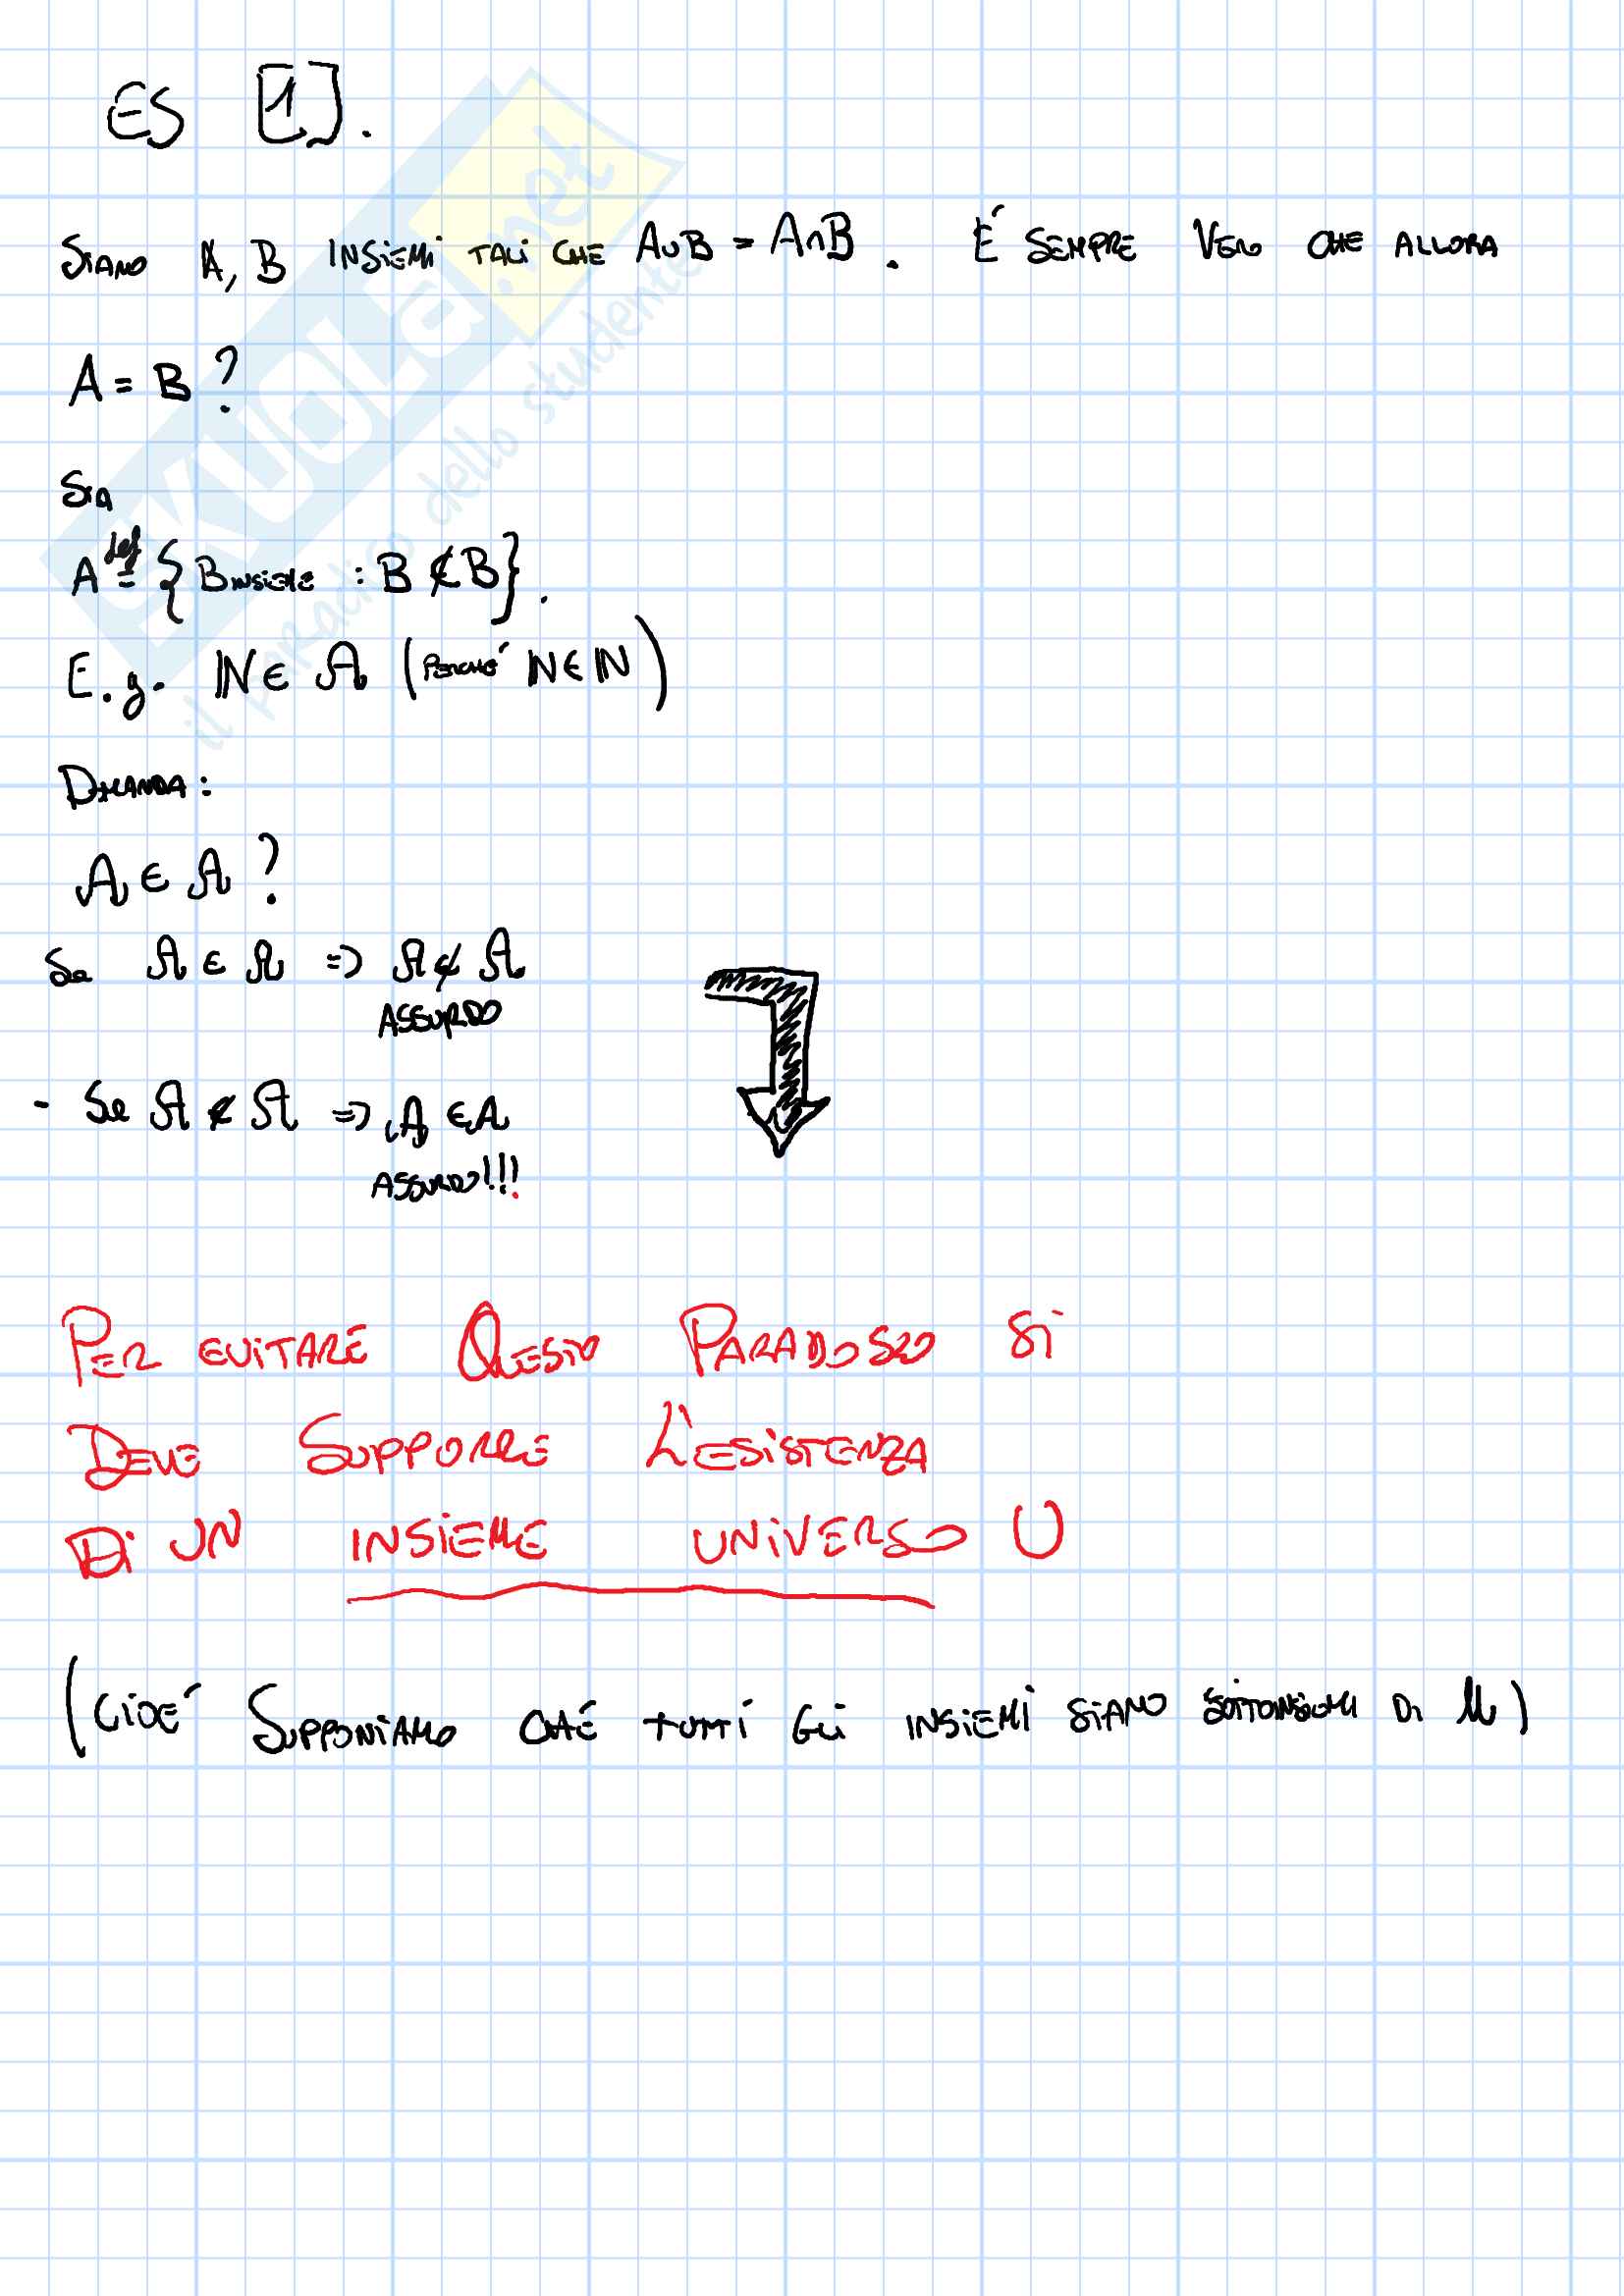 ES [1].
SIANO A, B INSIEMI TALI CHE A∪B = A∩B. É SEMPRE VERO CHE ALLORA
A = B ?
SIA
A def= { B INSIEME : B ∉ B }.
E.g. ℕ ∈ A (PERCHÉ ℕ ∈ ℕ)
DOMANDA:
A ∈ A ?
Se A ∈ A => A ∉ A
ASSURDO
- Se A ∉ A => A ∈ A
ASSURDO!!!
PER EVITARE QUESTO PARADOSSO SI
DEVE SUPPORRE L'ESISTENZA
DI UN INSIEME UNIVERSO U
(CIOÉ SUPPONIAMO CHÉ TUTTI GLI INSIEMI SIANO SOTTOINSIEMI DI U)
SKUOLA.net
il paradiso dello studente